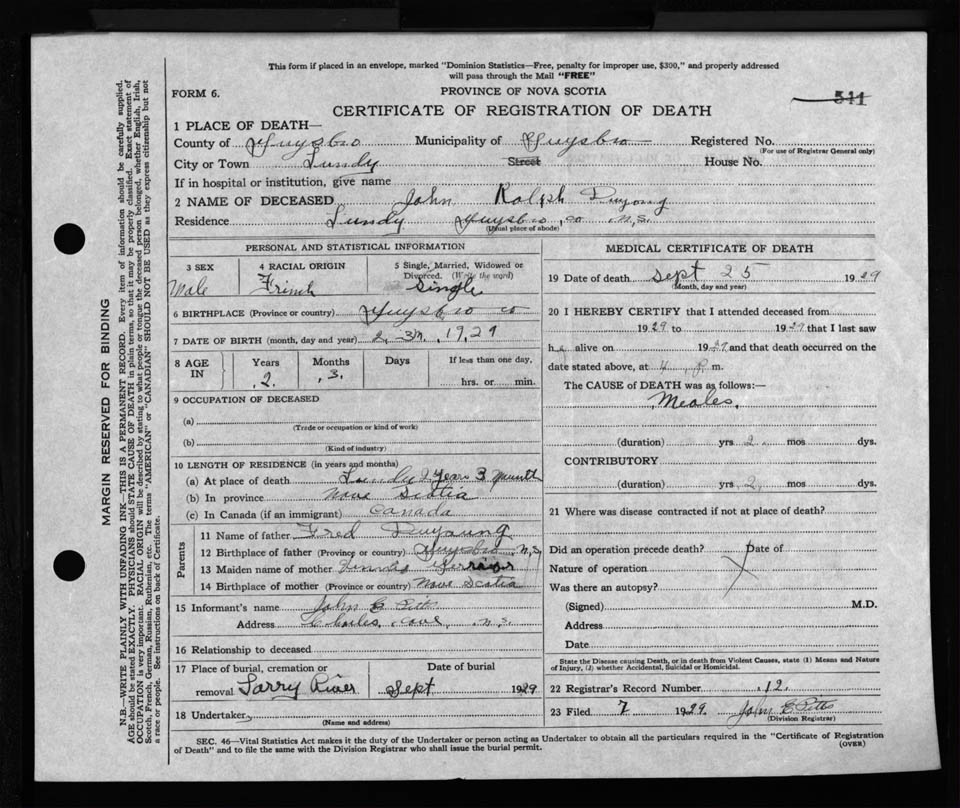 This form if placed in an envelope, marked "Dominion Statistics—Free, penalty for improper use, $300," and properly addressed
will pass through the Mail "FREE"
FORM 6.
PROVINCE OF NOVA SCOTIA
541
CERTIFICATE OF REGISTRATION OF DEATH
1 PLACE OF DEATH—
County of Guysbro Municipality of Guysbro Registered No.
(For use of Registrar General only)
City or Town Lundy Street House No.
If in hospital or institution, give name
2 NAME OF DECEASED John Ralph Duyong
Residence Lundy Guysbro, co N,S.
(Usual place of abode)
PERSONAL AND STATISTICAL INFORMATION
3 SEX 4 RACIAL ORIGIN 5 Single, Married, Widowed or
Divorced. (Write the word)
Male French Single
6 BIRTHPLACE (Province or country) Guysbro co
7 DATE OF BIRTH (month, day and year) 2, 3m, 1929
8 AGE IN Years Months Days If less than one day,
2. 3. hrs. or min.
9 OCCUPATION OF DECEASED
(a)
(Trade or occupation or kind of work)
(b)
(Kind of industry)
10 LENGTH OF RESIDENCE (in years and months)
(a) At place of death Lundy 2 years 3 Month
(b) In province Nova Scotia
(c) In Canada (if an immigrant) Canada
Parents
11 Name of father Fred Duyoung
12 Birthplace of father (Province or country) Guysbro N,S,
13 Maiden name of mother
14 Birthplace of mother (Province or country) Nova Scotia
15 Informant's name John E Pitts
Address Charles, Cove, N.S.
16 Relationship to deceased
17 Place of burial, cremation or Date of burial
removal Larry River Sept 1929
18 Undertaker
(Name and address)
MEDICAL CERTIFICATE OF DEATH
19 Date of death Sept 25 1929
(Month, day and year)
20 I HEREBY CERTIFY that I attended deceased from
1929 to 1929 that I last saw
h alive on 1929 and that death occurred on the
date stated above, at 4 P. m.
The CAUSE of DEATH was as follows:—
Meales,
(duration) yrs 2 mos dys.
CONTRIBUTORY
(duration) yrs 2 mos dys.
21 Where was disease contracted if not at place of death?
Did an operation precede death? Date of
Nature of operation
Was there an autopsy?
(Signed) M.D.
Address
Date
State the Disease causing Death, or in death from Violent Causes, state (1) Means and Nature
of Injury, (2) whether Accidental, Suicidal or Homicidal.
22 Registrar's Record Number 12.
23 Filed 7 1929 John E Pitts
(Division Registrar)
SEC. 46—Vital Statistics Act makes it the duty of the Undertaker or person acting as Undertaker to obtain all the particulars required in the "Certificate of Registration
of Death" and to file the same with the Division Registrar who shall issue the burial permit.
(OVER)
MARGIN RESERVED FOR BINDING
N.B.—WRITE PLAINLY WITH UNFADING INK—THIS IS A PERMANENT RECORD. Every item of information should be carefully supplied.
AGE should be stated EXACTLY. PHYSICIANS should STATE CAUSE OF DEATH in plain terms, so that it may be properly classified. Exact statement of
OCCUPATION is very important. RACIAL ORIGIN will be described by stating to what people or tongue the deceased person belonged, whether English, Irish,
Scotch, French, German, Russian, Ruthenian, etc. The terms "AMERICAN" or "CANADIAN" SHOULD NOT BE USED as they express citizenship but not
a race or people. See instructions on back of Certificate.